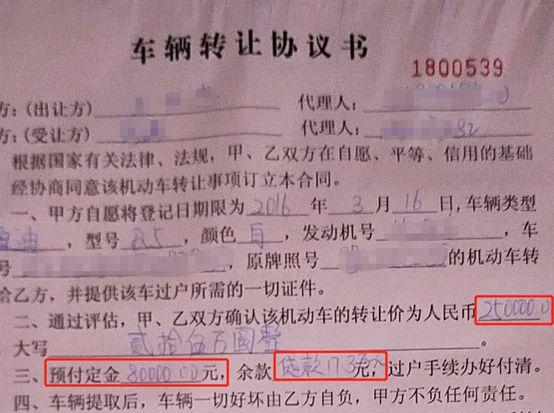 车辆转让协议书
1800539
方:(出让方) 代理人:
方:(受让方) 代理人:
根据国家有关法律、法规,甲、乙双方在自愿、平等、信用的基础
经协商同意该机动车转让事项订立本合同。
一、甲方自愿将登记日期限为2016年3月16日,车辆类型
,型号,颜色白,发动机号,车
号,原牌照号的机动车转
给乙方,并提供该车过户所需的一切证件。
二、通过评估,甲、乙双方确认该机动车的转让价为人民币250000.0
大写贰拾伍万圆整。
三、预付定金80000.00元,余款贷款17.3万元,过户手续办好付清。
四、车辆提取后,车辆一切好坏由乙方自负,甲方不负任何责任。